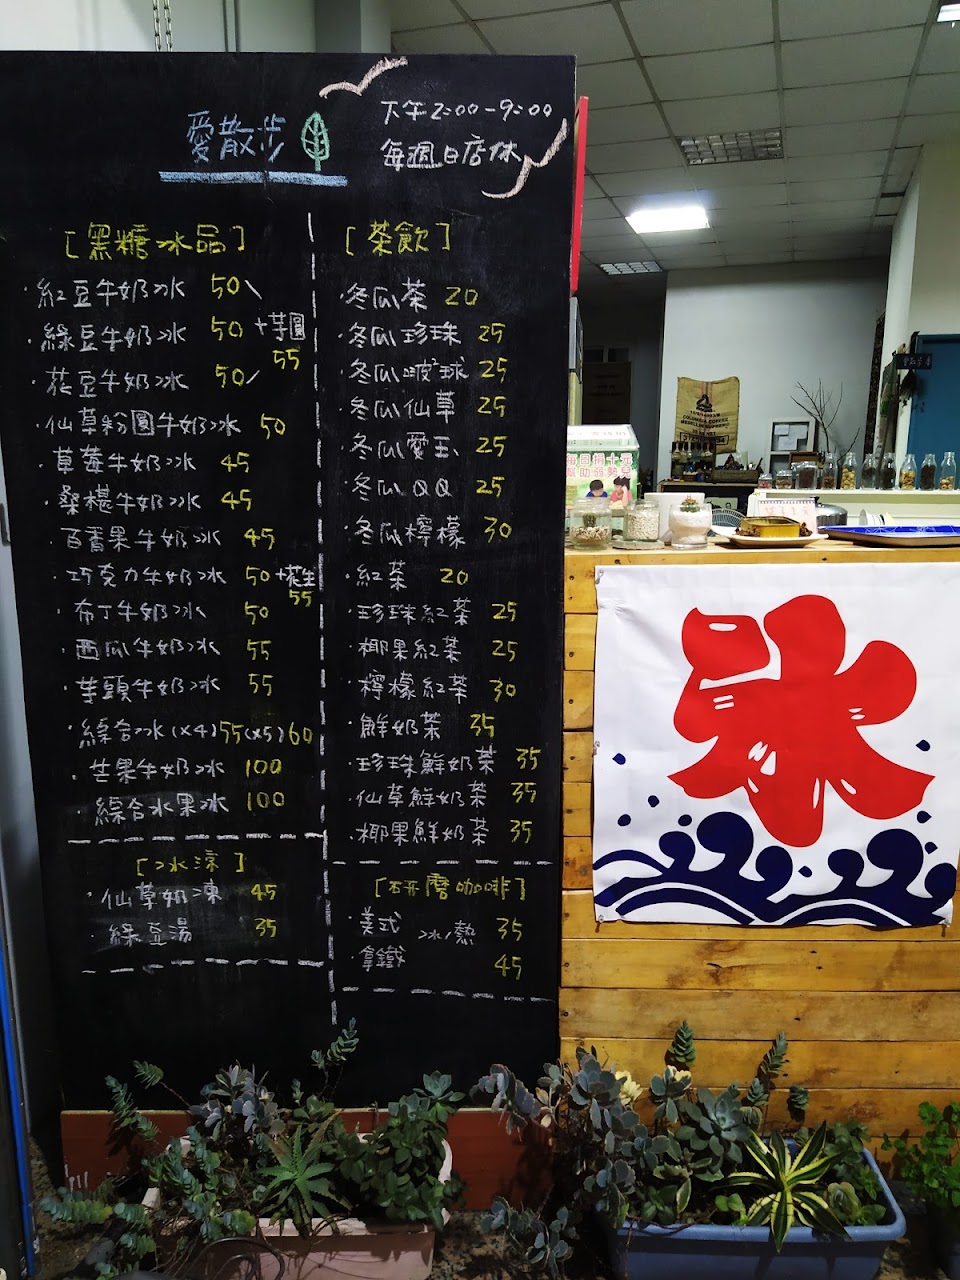 愛散步
下午2:00-9:00
每週日店休
[黑糖冰品]
·紅豆牛奶冰 50
·綠豆牛奶冰 50
·花豆牛奶冰 50
+芋圓
55
·仙草粉圓牛奶冰 50
·草莓牛奶冰 45
·桑椹牛奶冰 45
·百香果牛奶冰 45
·巧克力牛奶冰 50 +花生
55
·布丁牛奶冰 50
·西瓜牛奶冰 55
·芋頭牛奶冰 55
·綜合冰(x4)55(x5)60
·芒果牛奶冰 100
·綜合水果冰 100
[冰涼]
·仙草奶凍 45
·綠豆湯 35
[茶飲]
·冬瓜茶 20
·冬瓜珍珠 25
·冬瓜啵球 25
·冬瓜仙草 25
·冬瓜愛玉 25
·冬瓜QQ 25
·冬瓜檸檬 30
·紅茶 20
·珍珠紅茶 25
·椰果紅茶 25
·檸檬紅茶 30
·鮮奶茶 35
·珍珠鮮奶茶 35
·仙草鮮奶茶 35
·椰果鮮奶茶 35
[研磨咖啡]
·美式 冰/熱 35
·拿鐵 45
每日捐十元
幫助弱勢兒
冰